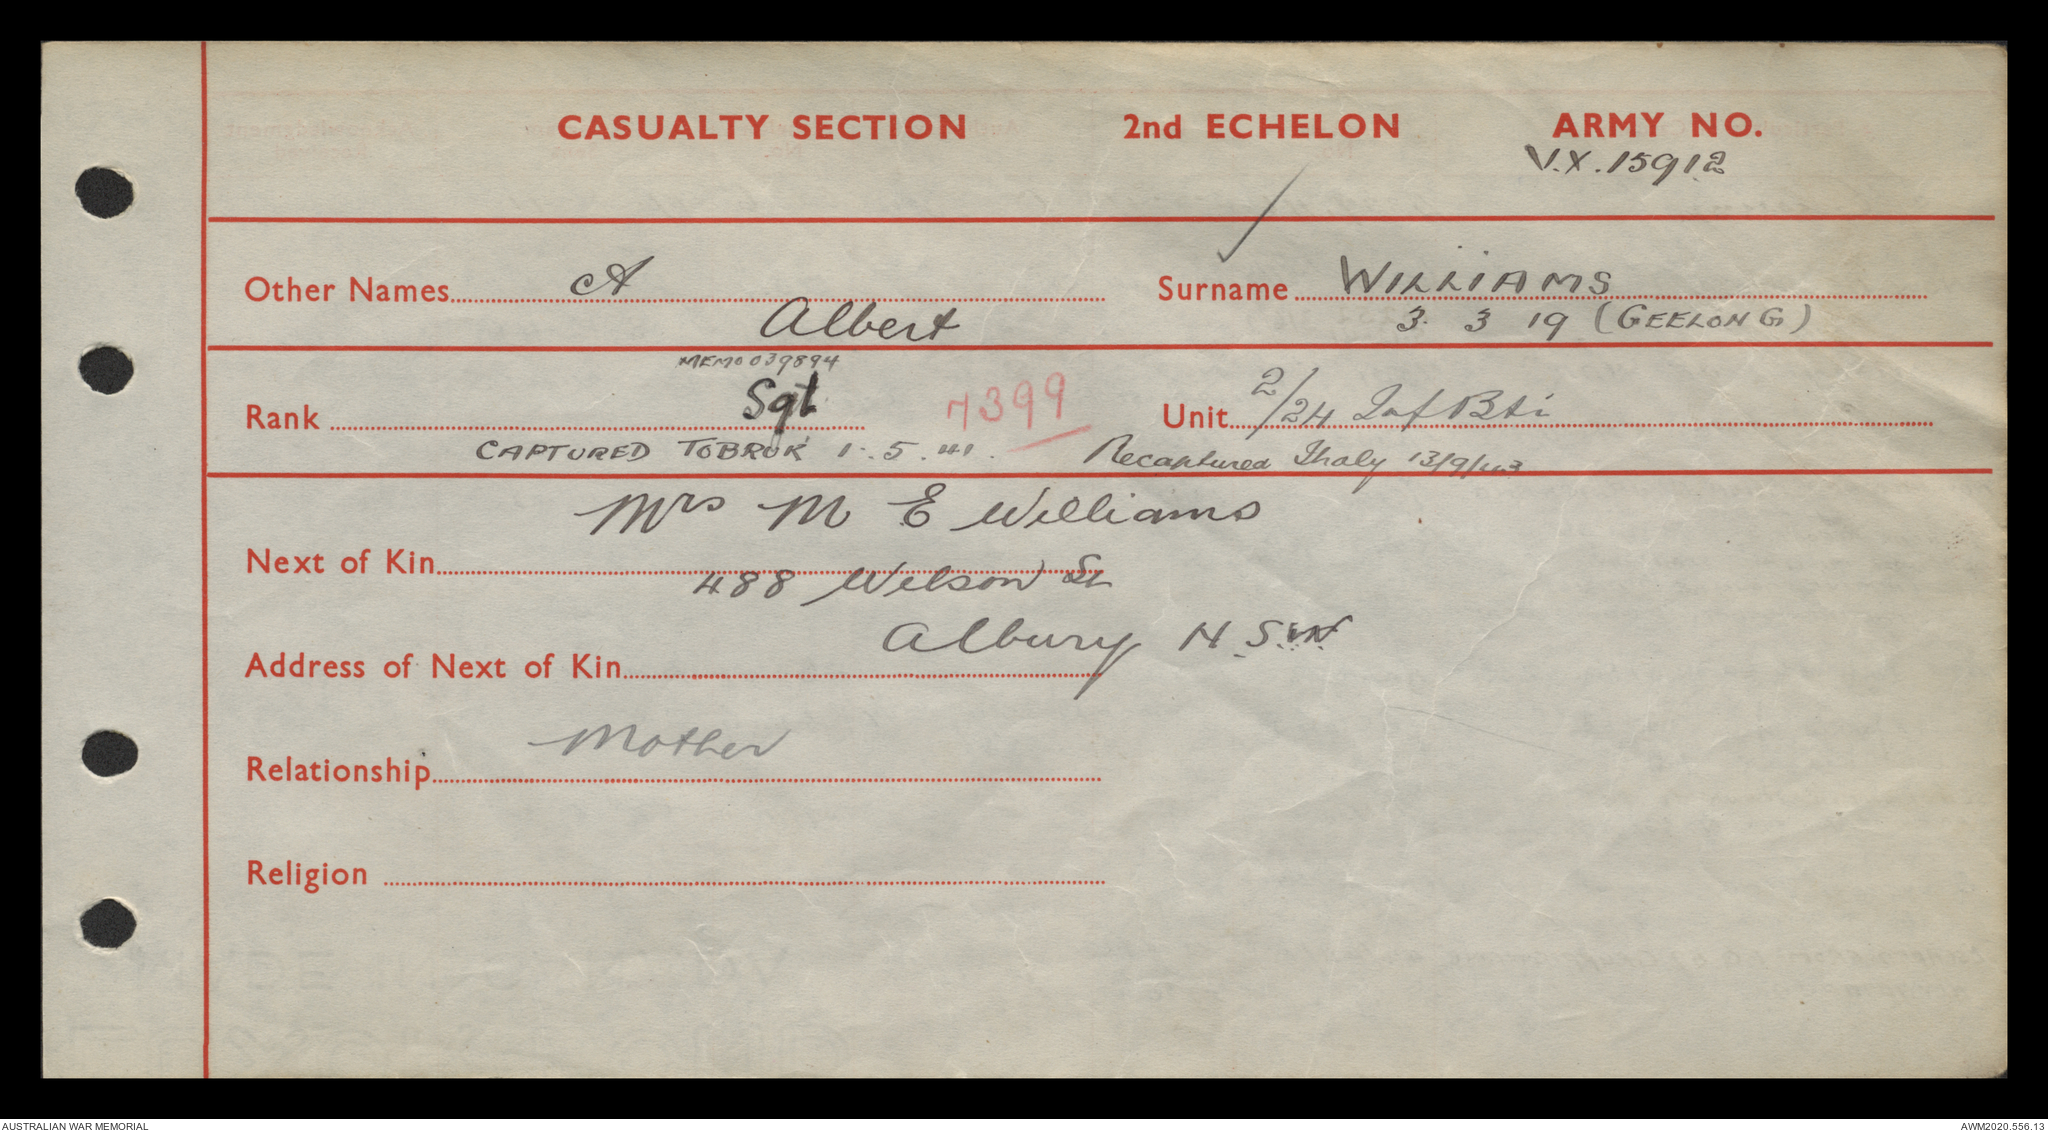 CASUALTY SECTION 2nd ECHELON ARMY NO.
V.X.15912
Other Names A Surname WILLIAMS
Albert 3. 3 19 (GEELONG)
MEMO 039894
Rank Sgt 7399 Unit 2/24 Inf Btn
CAPTURED TOBRUK 1.5.41. Recaptured Italy 13/9/43
Mrs M E Williams
Next of Kin
488 Wilson St
Albury N.S.W
Address of Next of Kin
Mother
Relationship
Religion
AUSTRALIAN WAR MEMORIAL AWM2020.556.13